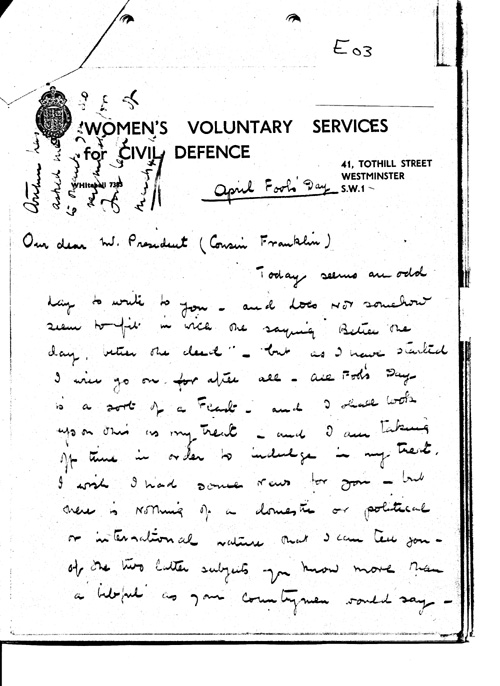 E03
WOMEN'S VOLUNTARY SERVICES
for CIVIL DEFENCE
41, TOTHILL STREET
WESTMINSTER
S.W.1
WHITEHALL 7383
April Fools' Day
Our dear Mr. President (Cousin Franklin)
Today seems an odd
day to write to you - and does not somehow
seem to fit in with the saying "Better the
day, better the deed" - but as I have started
I will go on. for after all - All Fools Day
is a sort of a Feast - and I shall look
upon this as my treat - and I am taking
off time in order to indulge in my treat.
I wish I had some news for you - but
there is nothing of a domestic or political
or international nature that I can tell you -
of the two latter subjects you know more than
a as your countrymen would say -
asked me
to